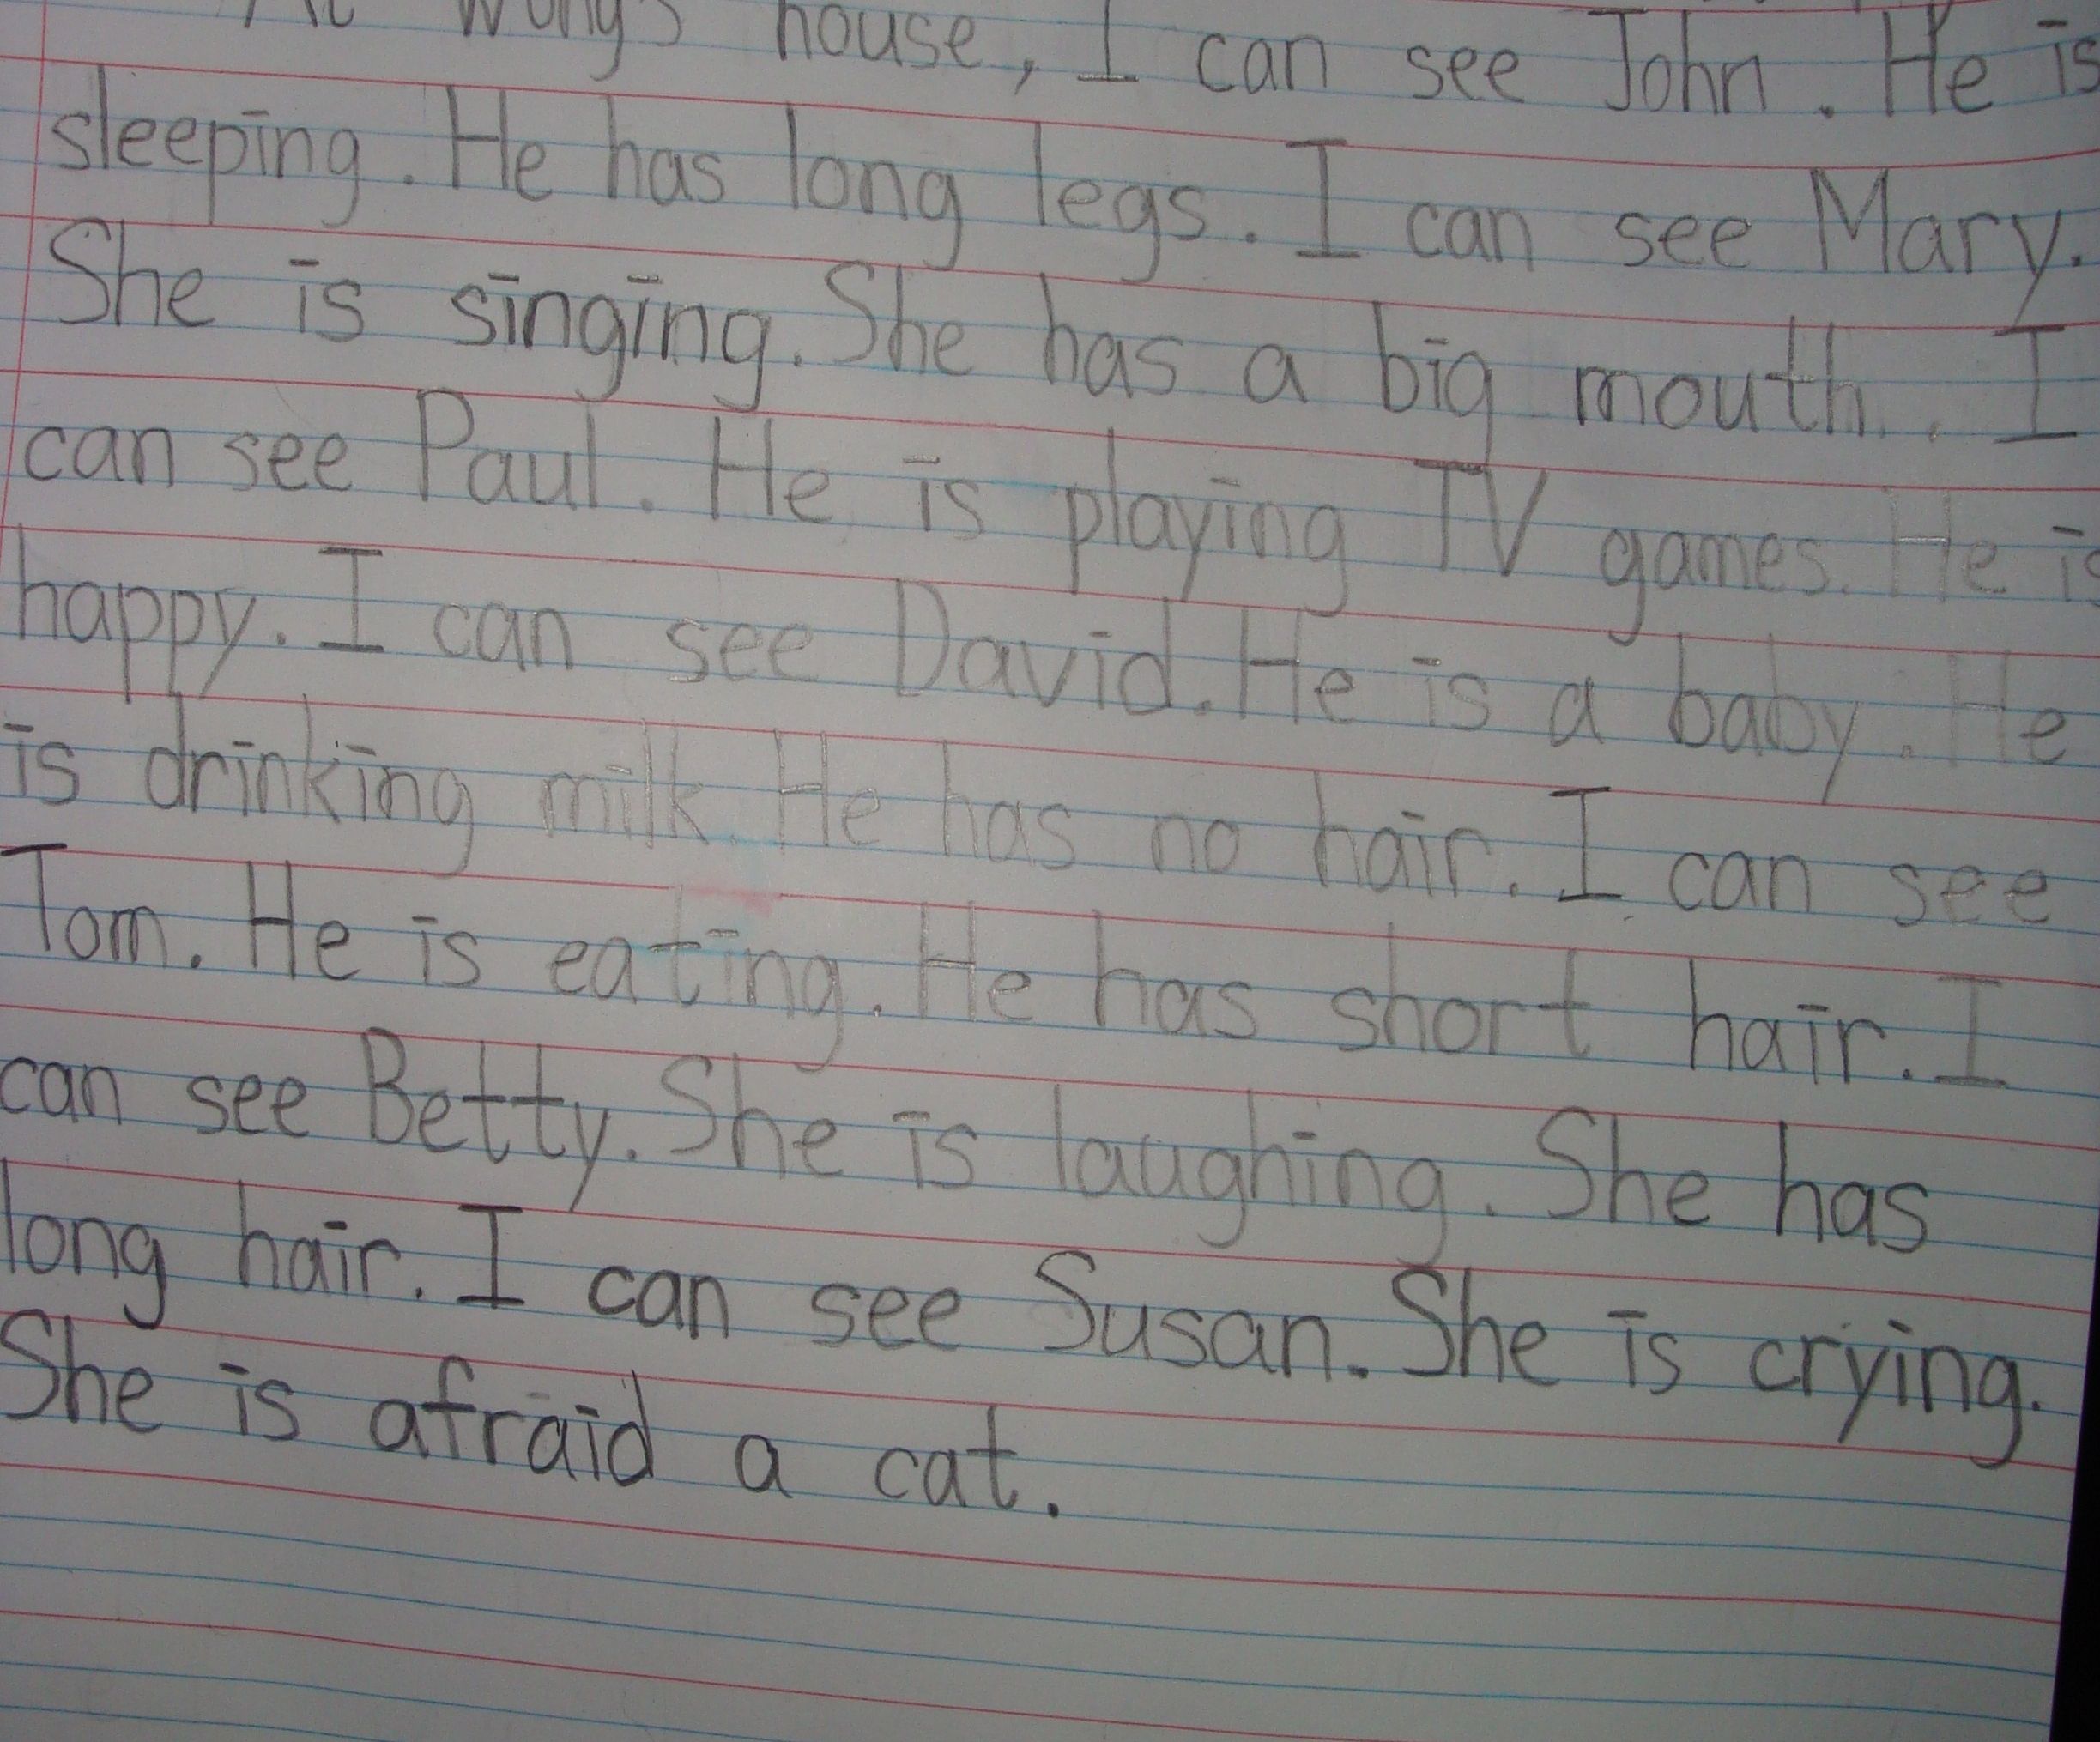 At Wong's house, I can see John. He is
sleeping. He has long legs. I can see Mary.
She is singing. She has a big mouth. I
can see Paul. He is playing TV games. He is
happy. I can see David. He is a baby. He
is drinking milk. He has no hair. I can see
Tom. He is eating. He has short hair. I
can see Betty. She is laughing. She has
long hair. I can see Susan. She is crying.
She is afraid a cat.